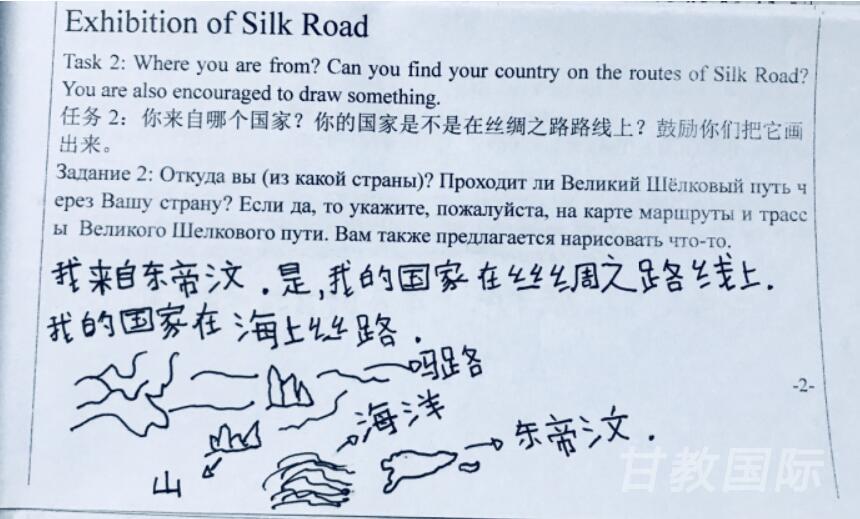 Exhibition of Silk Road
Task 2: Where you are from? Can you find your country on the routes of Silk Road?
You are also encouraged to draw something.
任务 2：你来自哪个国家？你的国家是不是在丝绸之路路线上？鼓励你们把它画
出来。
Задание 2: Откуда вы (из какой страны)? Проходит ли Великий Шёлковый путь ч
ерез Вашу страну? Если да, то укажите, пожалуйста, на карте маршруты и трасс
ы Великого Шелкового пути. Вам также предлагается нарисовать что-то.
我来自东帝汶.是,我的国家在丝绸之路线上.
我的国家在海上丝路.
路
-2-
海洋
东帝汶.
山
甘教国际